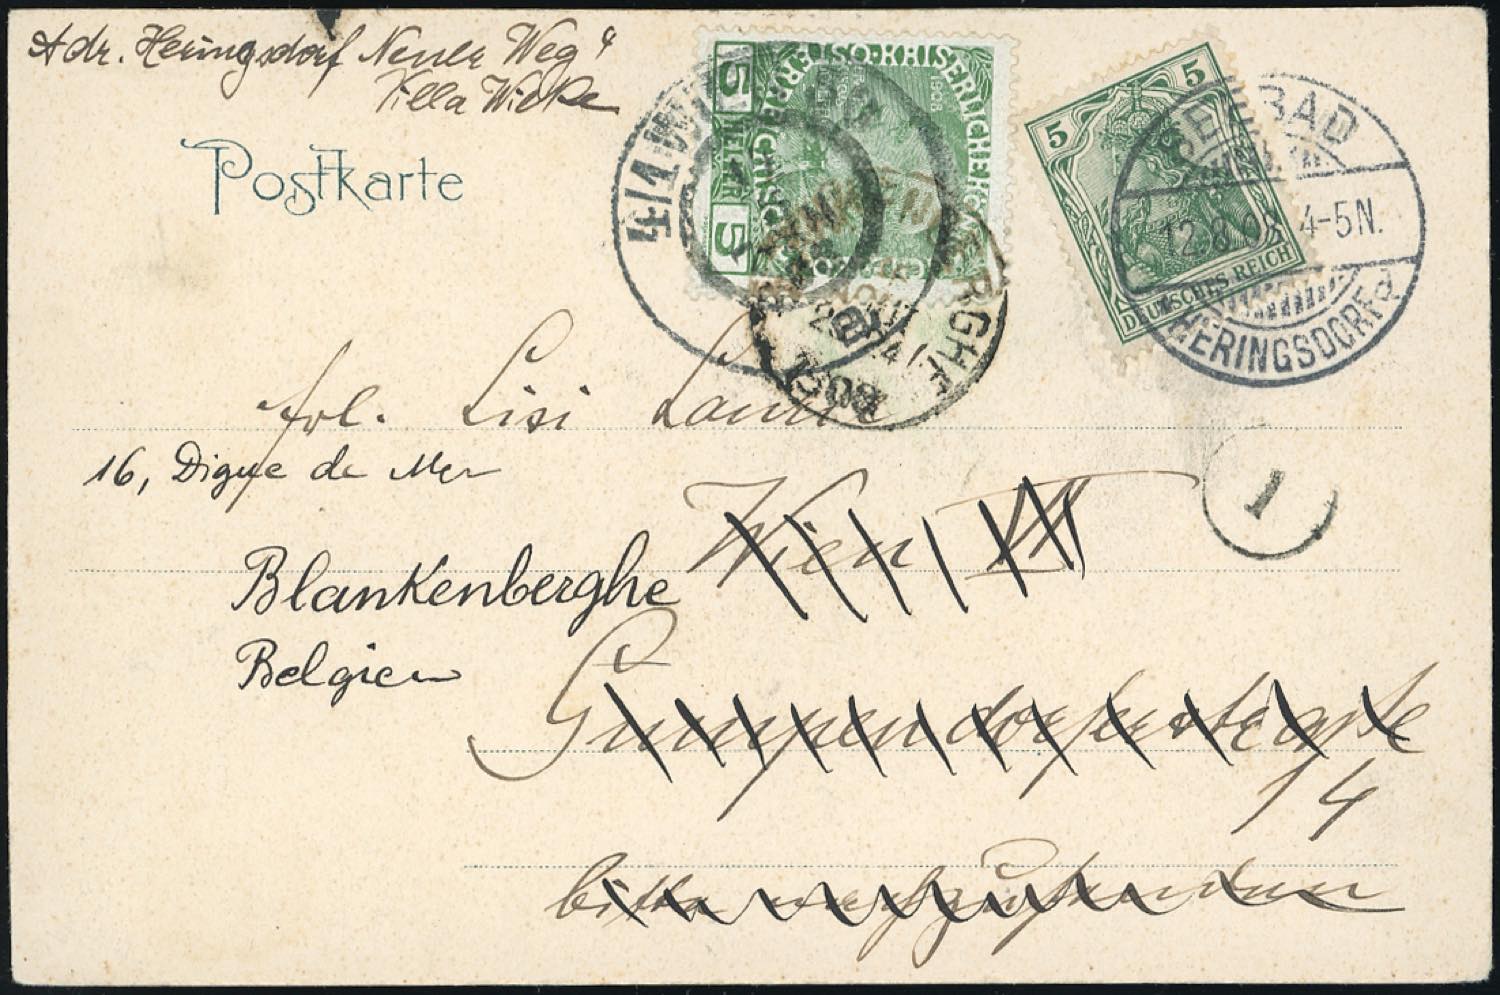 Adr. Heringsdorf Neuer Weg 4
Villa Wicke
Postkarte
5 HELLER 5
KAISERLICHE KÖNIGLICHE
1908
5 5
DEUTSCHES REICH
SEEBAD
12.8.08 4-5N.
HERINGSDORF
4/1
BLANKENBERGHE
1908
Frl. Lisi
16, Digue de Mer
1
Wien VI
Blankenberghe
Belgien
Gumpendorferstraße
14
bitte nachzusenden